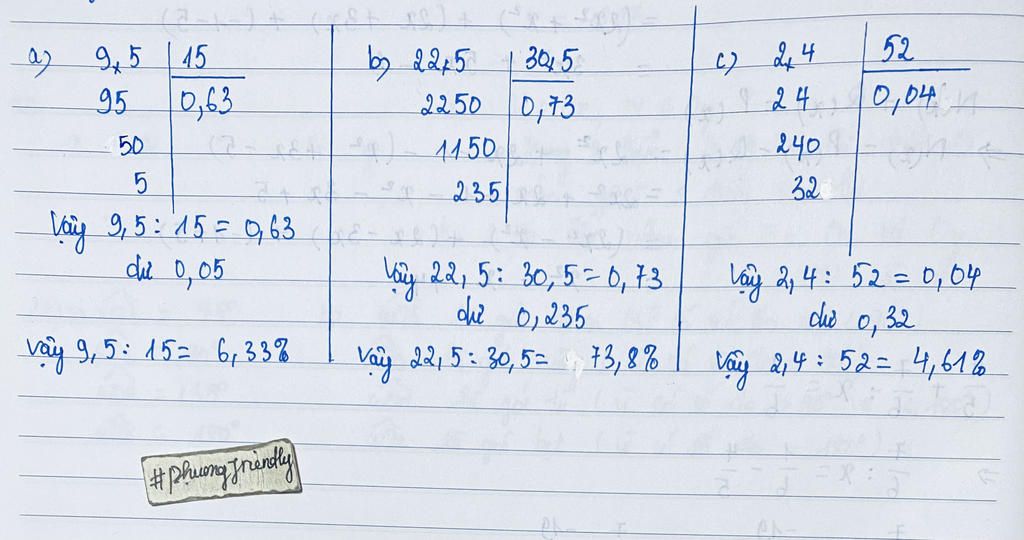 a) 9,5 | 15
95 | 0,63
50
5
Vậy 9,5 : 15 = 0,63
dư 0,05
Vậy 9,5 : 15 = 6,33%
b) 22,5 | 30,5
2250 | 0,73
1150
235
Vậy 22,5 : 30,5 = 0,73
dư 0,235
Vậy 22,5 : 30,5 = 73,8%
c) 2,4 | 52
24 | 0,04
240
32
Vậy 2,4 : 52 = 0,04
dư 0,32
Vậy 2,4 : 52 = 4,61%
#phuongfriendly